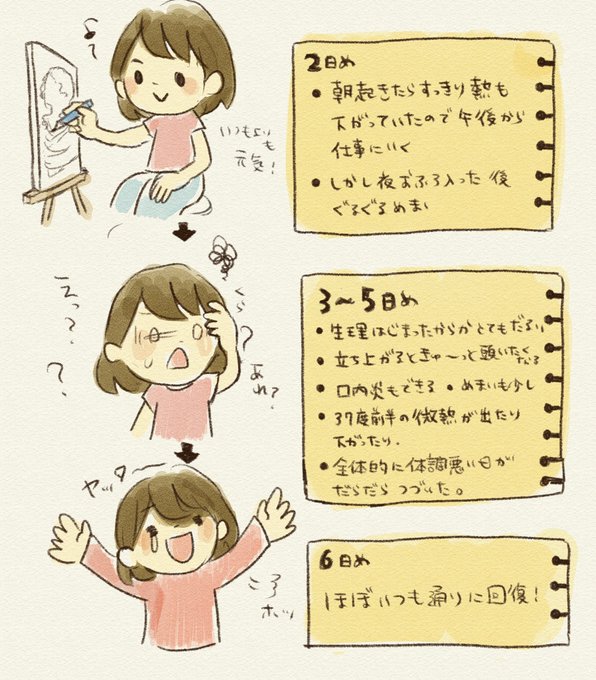 いつもより
も
元気!
2日め
• 朝起きたらすっきり熱も
下がっていたので午後から
仕事にいく
• しかし夜おふろ入った後
ぐるぐるめまい
えっ?
?
くら
?
あれ?
3〜5日め
• 生理はじまったからかとてもだるい
• 立ち上がるときゅ〜っと頭いたくなる
• 口内炎もできる • めまいも少し
• 37度前半の微熱が出たり
下がったり.
• 全体的に体調悪い日が
だらだらつづいた。
ヤッター
ホッ
6日め
ほぼいつも通りに回復!